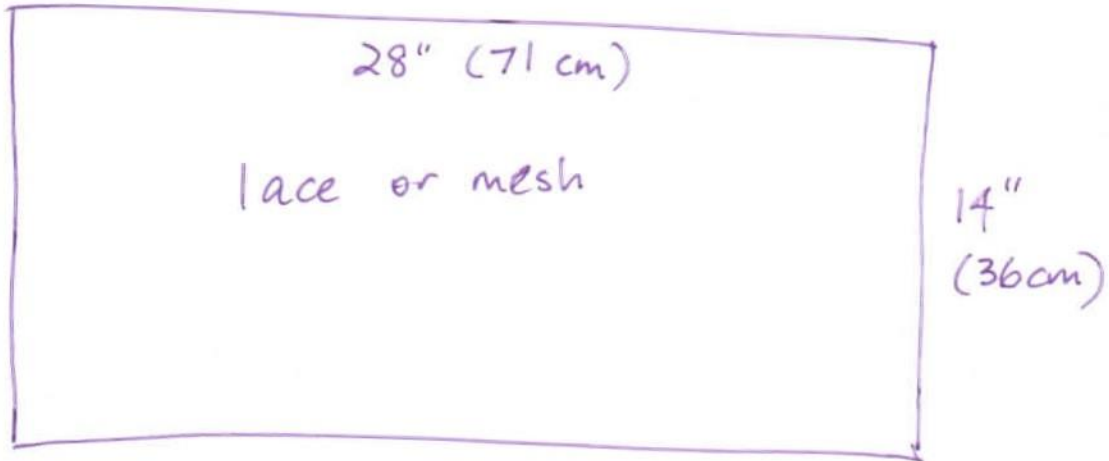 28" (71 cm)
lace or mesh
14"
(36cm)